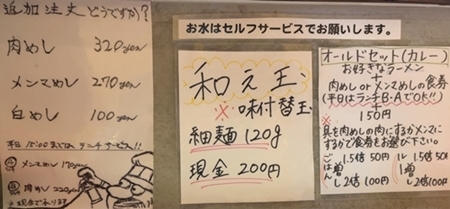 追加注文どうですか?
肉めし 320yen
メンマめし 270yen
白めし 100yen
平日15:00まではランチサービス!!
メンマめし 170yen
肉めし 220yen
お水はセルフサービスでお願いします。
和え玉
※味付替玉
細麺120g
現金200円
オールドセット(カレー)
お好きなラーメン
+
肉めし or メンマめしの食券
(平日はランチB・AでOK!!)
+
150円
具を肉めしの肉にするかメンマに
するかで食券をお選び下さい。
ごはん増し 1.5倍 50円
2倍 100円
ルー増し 1.5倍 50円
2倍 100円